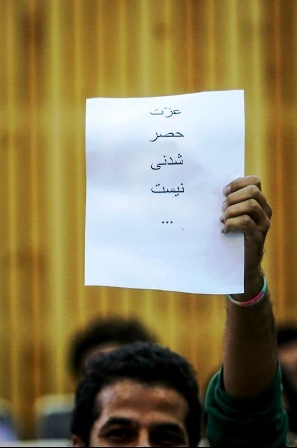 عزّت
حصر
شدنی
نیست
...